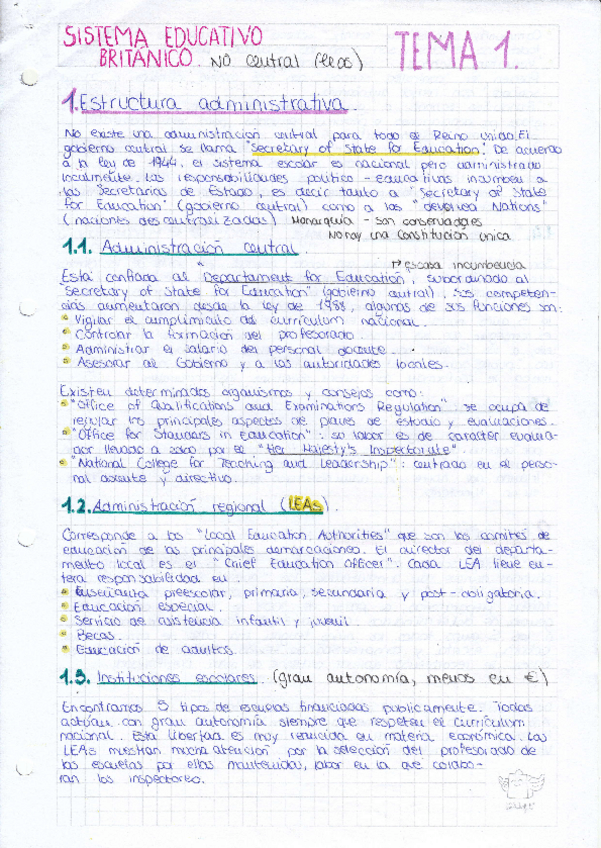 SISTEMA EDUCATIVO
BRITÁNICO. NO central (leas)
TEMA 1.
1. Estructura administrativa.
No existe una administración central para todo el Reino Unido. El
gobierno central se llama "Secretary of State for Education". De acuerdo
a la ley de 1944, el sistema escolar es nacional pero administrado
localmente. Las responsabilidades político-educativas incumben a
las Secretarías de Estado, es decir tanto a "Secretary of State
for Education" (gobierno central) como a las "devolved Nations"
(naciones descentralizadas) Monarquía - son conservadores
No hay una Constitución única
1.1. Administración central.
↱ escasa incumbencia
Está confiada al Departament for Education, subordinado al
"Secretary of State for Education" (gobierno central). Sus competen-
cias aumentaron desde la ley de 1988, algunas de sus funciones son:
Vigilar el cumplimiento del currículum nacional.
Controlar la formación del profesorado.
Administrar el salario del personal docente.
Asesorar al Gobierno y a las autoridades locales.
Existen determinados organismos y consejos como:
"Office of Qualifications and Examinations Regulation" se ocupa de
regular los principales aspectos de planes de estudio y evaluaciones.
"Office for Standars in Education": su labor es de carácter evalua-
dor llevado a cabo por el "Her Majesty's Inspectorate"
"National College for Teaching and Leadership": centrado en el perso-
nal docente y directivo.
1.2. Administración regional (LEAs).
Corresponde a las "Local Education Authorities" que son los comités de
educación de las principales demarcaciones. El director del departa-
mento local es el "Chief Education Officer". Cada LEA tiene en-
tera responsabilidad en:
Enseñanza preescolar, primaria, secundaria y post-obligatoria.
Educación especial.
Servicio de asistencia infantil y juvenil.
Becas.
Educación de adultos.
1.3. Instituciones escolares. (gran autonomía, menos en €)
Encontramos 5 tipos de escuelas financiadas públicamente. Todas
actúan con gran autonomía siempre que respeten el currículum
nacional. Esta libertad es muy reducida en materia económica. Las
LEAs muestran mucha atención por la selección del profesorado de
las escuelas por ellas mantenidas, labor en la que colabo-
ran los inspectores.